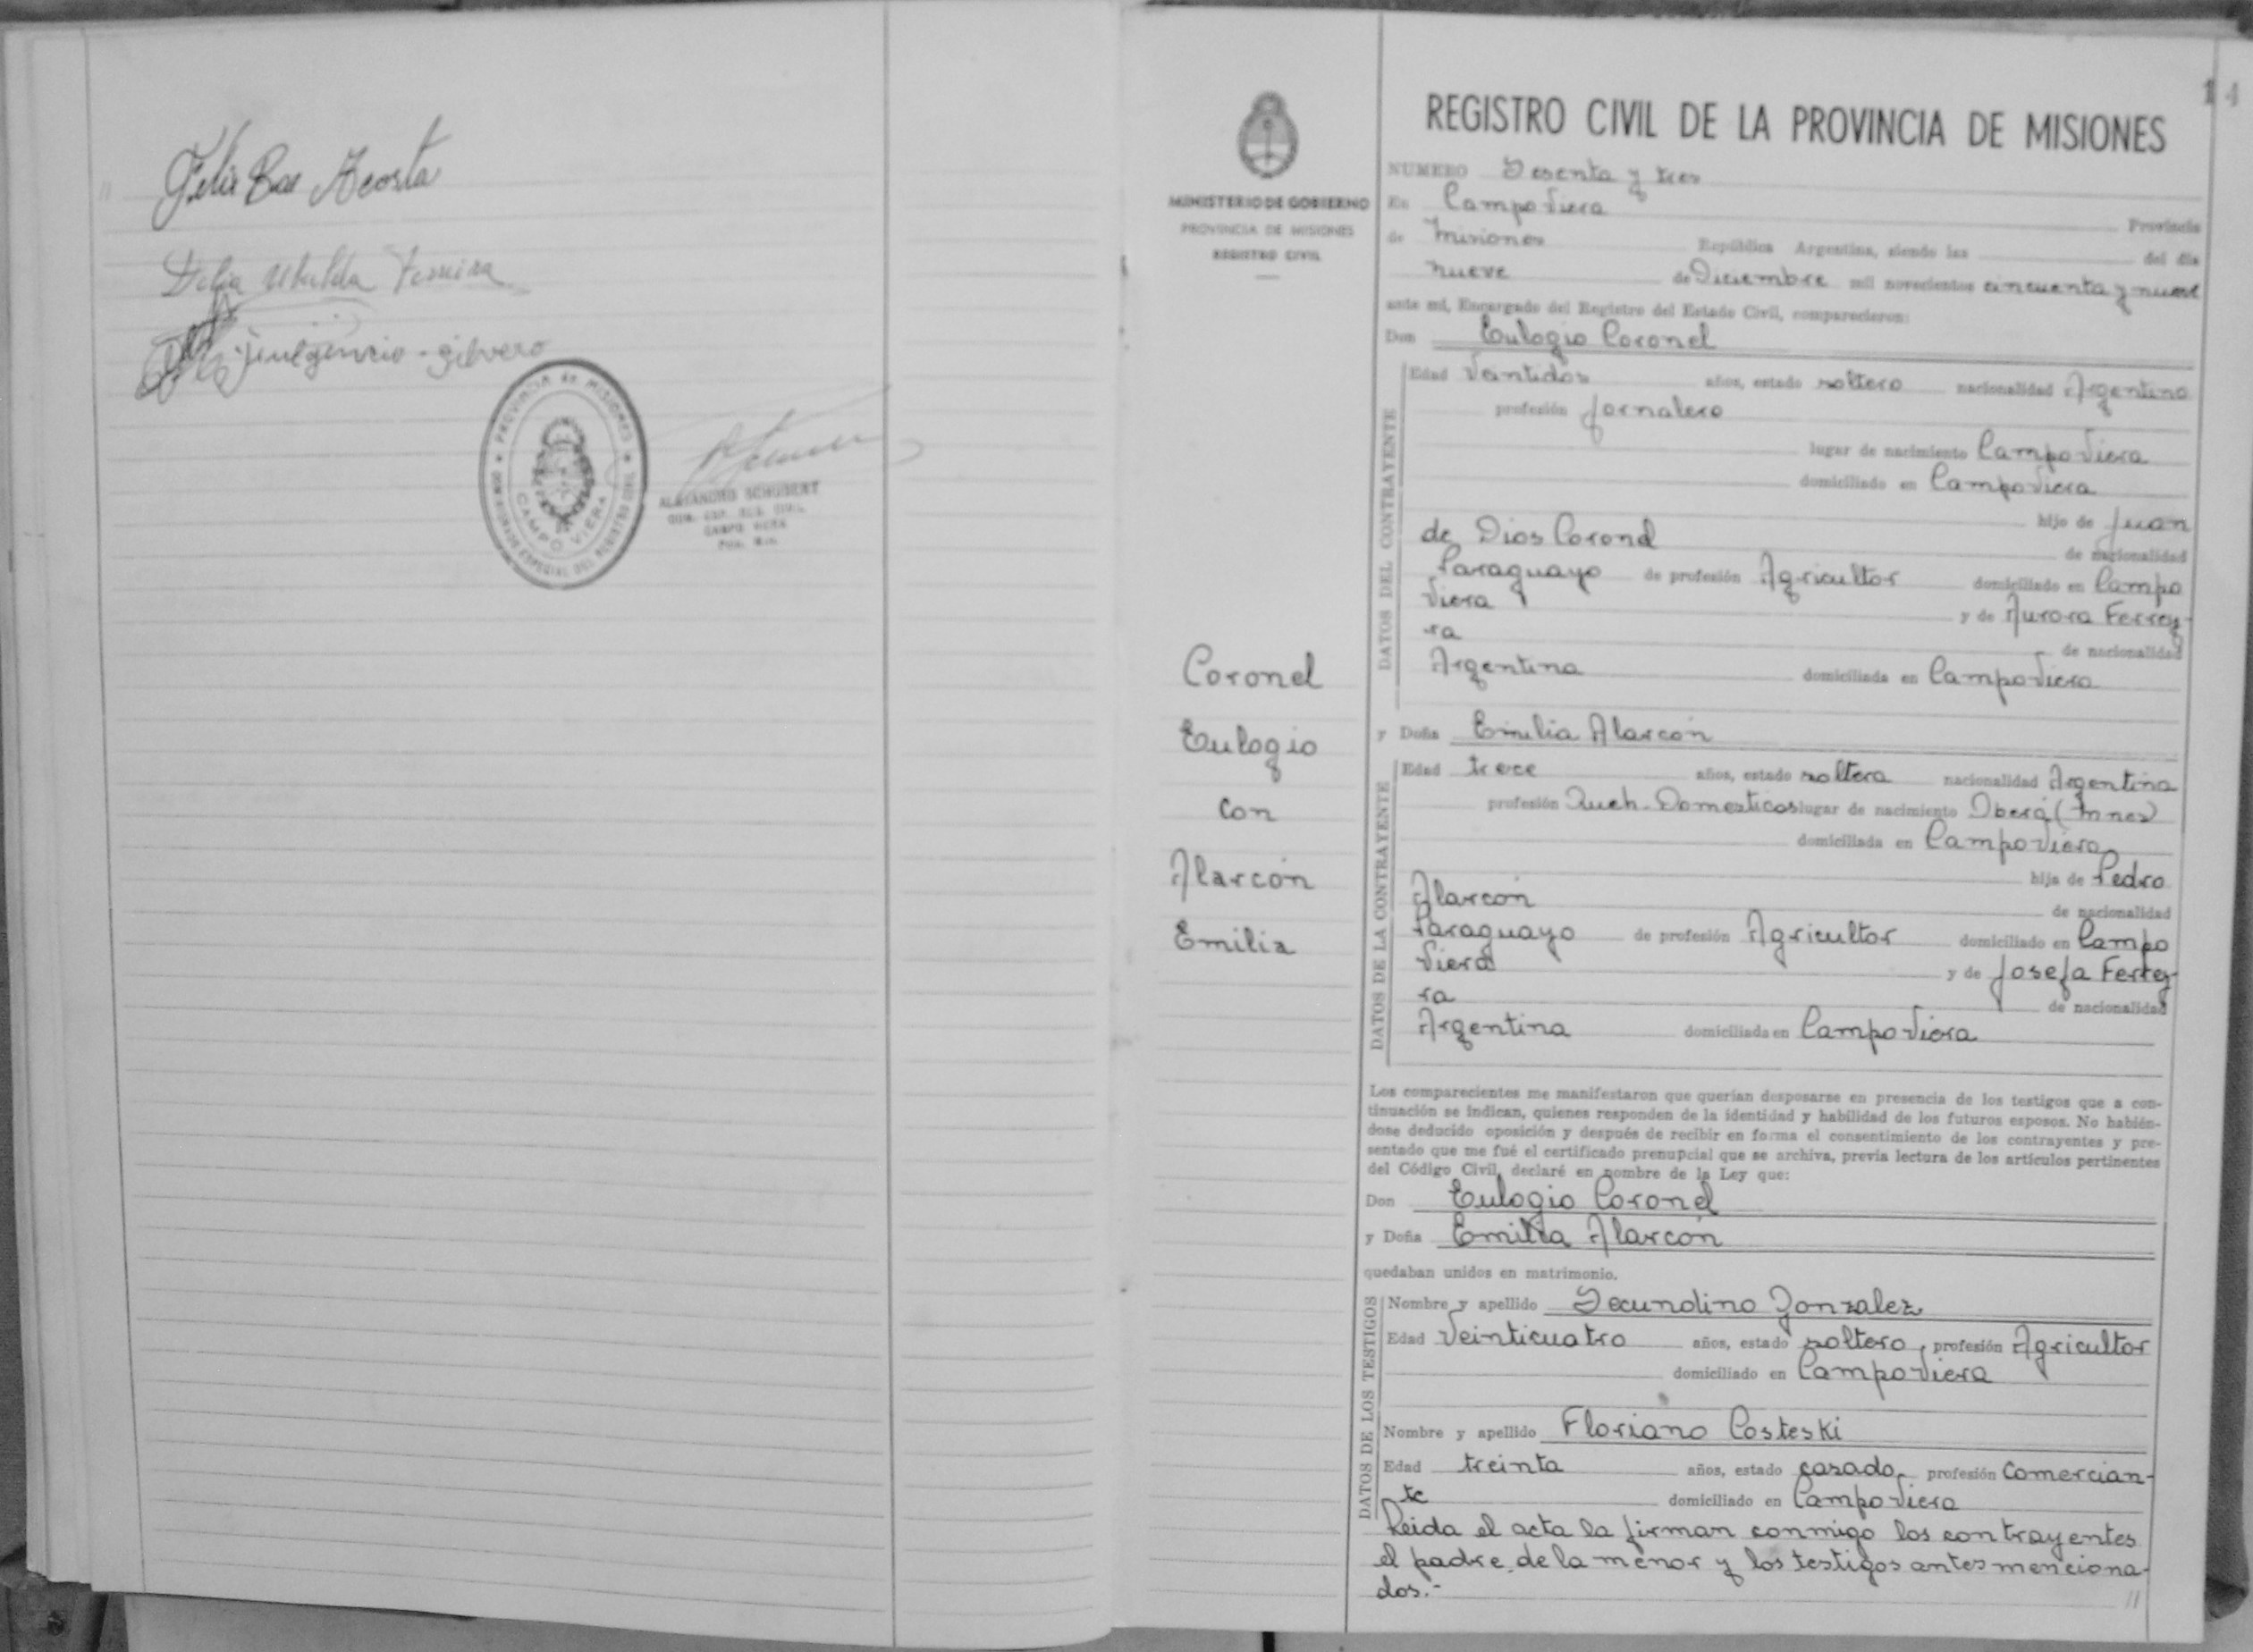 Felix Bae Acosta
Delia Ubalda Ferreira
Fulgencio - Silvero
PROVINCIA de MISIONES
CAMPO VIERA
ALEJANDRO SCHUBERT
CAMPO VIERA
14
MINISTERIO DE GOBIERNO
PROVINCIA DE MISIONES
REGISTRO CIVIL
Coronel
Eulogio
con
Alarcón
Emilia
REGISTRO CIVIL DE LA PROVINCIA DE MISIONES
NUMERO Sesenta y tres
En Campo Viera Provincia
de Misiones República Argentina, siendo las del día
nueve de Diciembre mil novecientos cincuenta y nueve
ante mi, Encargado del Registro del Estado Civil, comparecieron:
Don Eulogio Coronel
DATOS DEL CONTRAYENTE
Edad Veintidos años, estado soltero nacionalidad Argentino
profesión Jornalero
lugar de nacimiento Campo Viera
domiciliado en Campo Viera
hijo de Juan
de Dios Coronel de nacionalidad
Paraguayo de profesión Agricultor domiciliado en Campo
Viera y de Aurora Ferrey-
ra de nacionalidad
Argentina domiciliada en Campo Viera
y Doña Emilia Alarcón
DATOS DE LA CONTRAYENTE
Edad trece años, estado soltera nacionalidad Argentina
profesión Queh. Domesticos lugar de nacimiento Oberá (Mnes)
domiciliada en Campo Viera
hija de Pedro
Alarcón de nacionalidad
Paraguayo de profesión Agricultor domiciliado en Campo
Viera y de Josefa Ferrey-
ra de nacionalidad
Argentina domiciliada en Campo Viera
Los comparecientes me manifestaron que querían desposarse en presencia de los testigos que a con-
tinuación se indican, quienes responden de la identidad y habilidad de los futuros esposos. No habién-
dose deducido oposición y después de recibir en forma el consentimiento de los contrayentes y pre-
sentado que me fué el certificado prenupcial que se archiva, previa lectura de los artículos pertinentes
del Código Civil, declaré en nombre de la Ley que:
Don Eulogio Coronel
y Doña Emilia Alarcón
quedaban unidos en matrimonio.
DATOS DE LOS TESTIGOS
Nombre y apellido Secundino Gonzalez
Edad Veinticuatro años, estado soltero, profesión Agricultor
domiciliado en Campo Viera
Nombre y apellido Floriano Costeski
Edad treinta años, estado casado, profesión Comercian-
te domiciliado en Campo Viera
Leida el acta la firman conmigo los contrayentes
el padre de la menor y los testigos antes menciona-
dos.- //